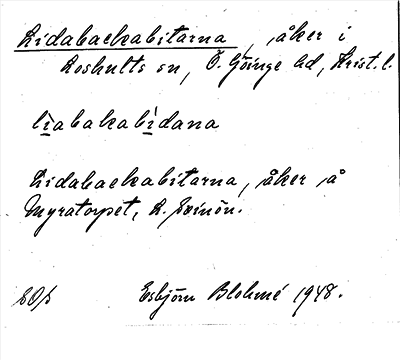 Lidabackabitarna, åker i
Loshults sn, Ö. Göinge hd, Krist. l.
lìabakabìdana
Lidabackabitarna, åker å
Myratorpet,
Esbjörn Blohmé 1948.